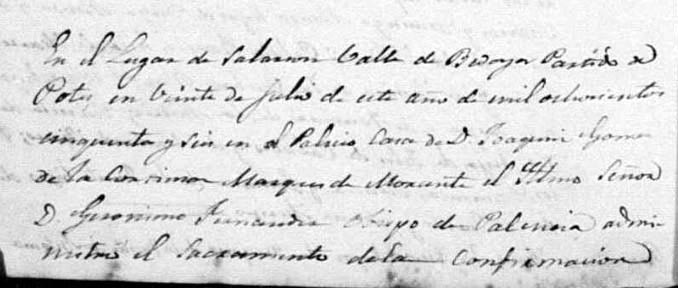 En el Lugar de Salarzon Valle de Bedoya Partido de
Potes en Veinte de Julio de este año de mil ochocientos
cinquenta y seis en el Palacio Casa de D. Joaquin Gomez
de la Cortina Marques de Morante el Ilmo Señor
D. Geronimo Fernandez Obispo de Palencia admi
nistro el Sacramento de la Confirmacion